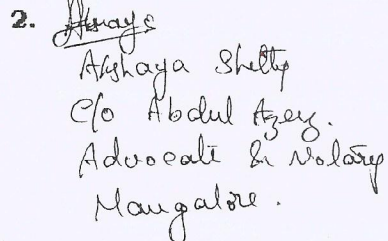 2. Akshaya
Akshaya Shetty
C/o Abdul Azeez.
Advocate & Notary
Mangalore.